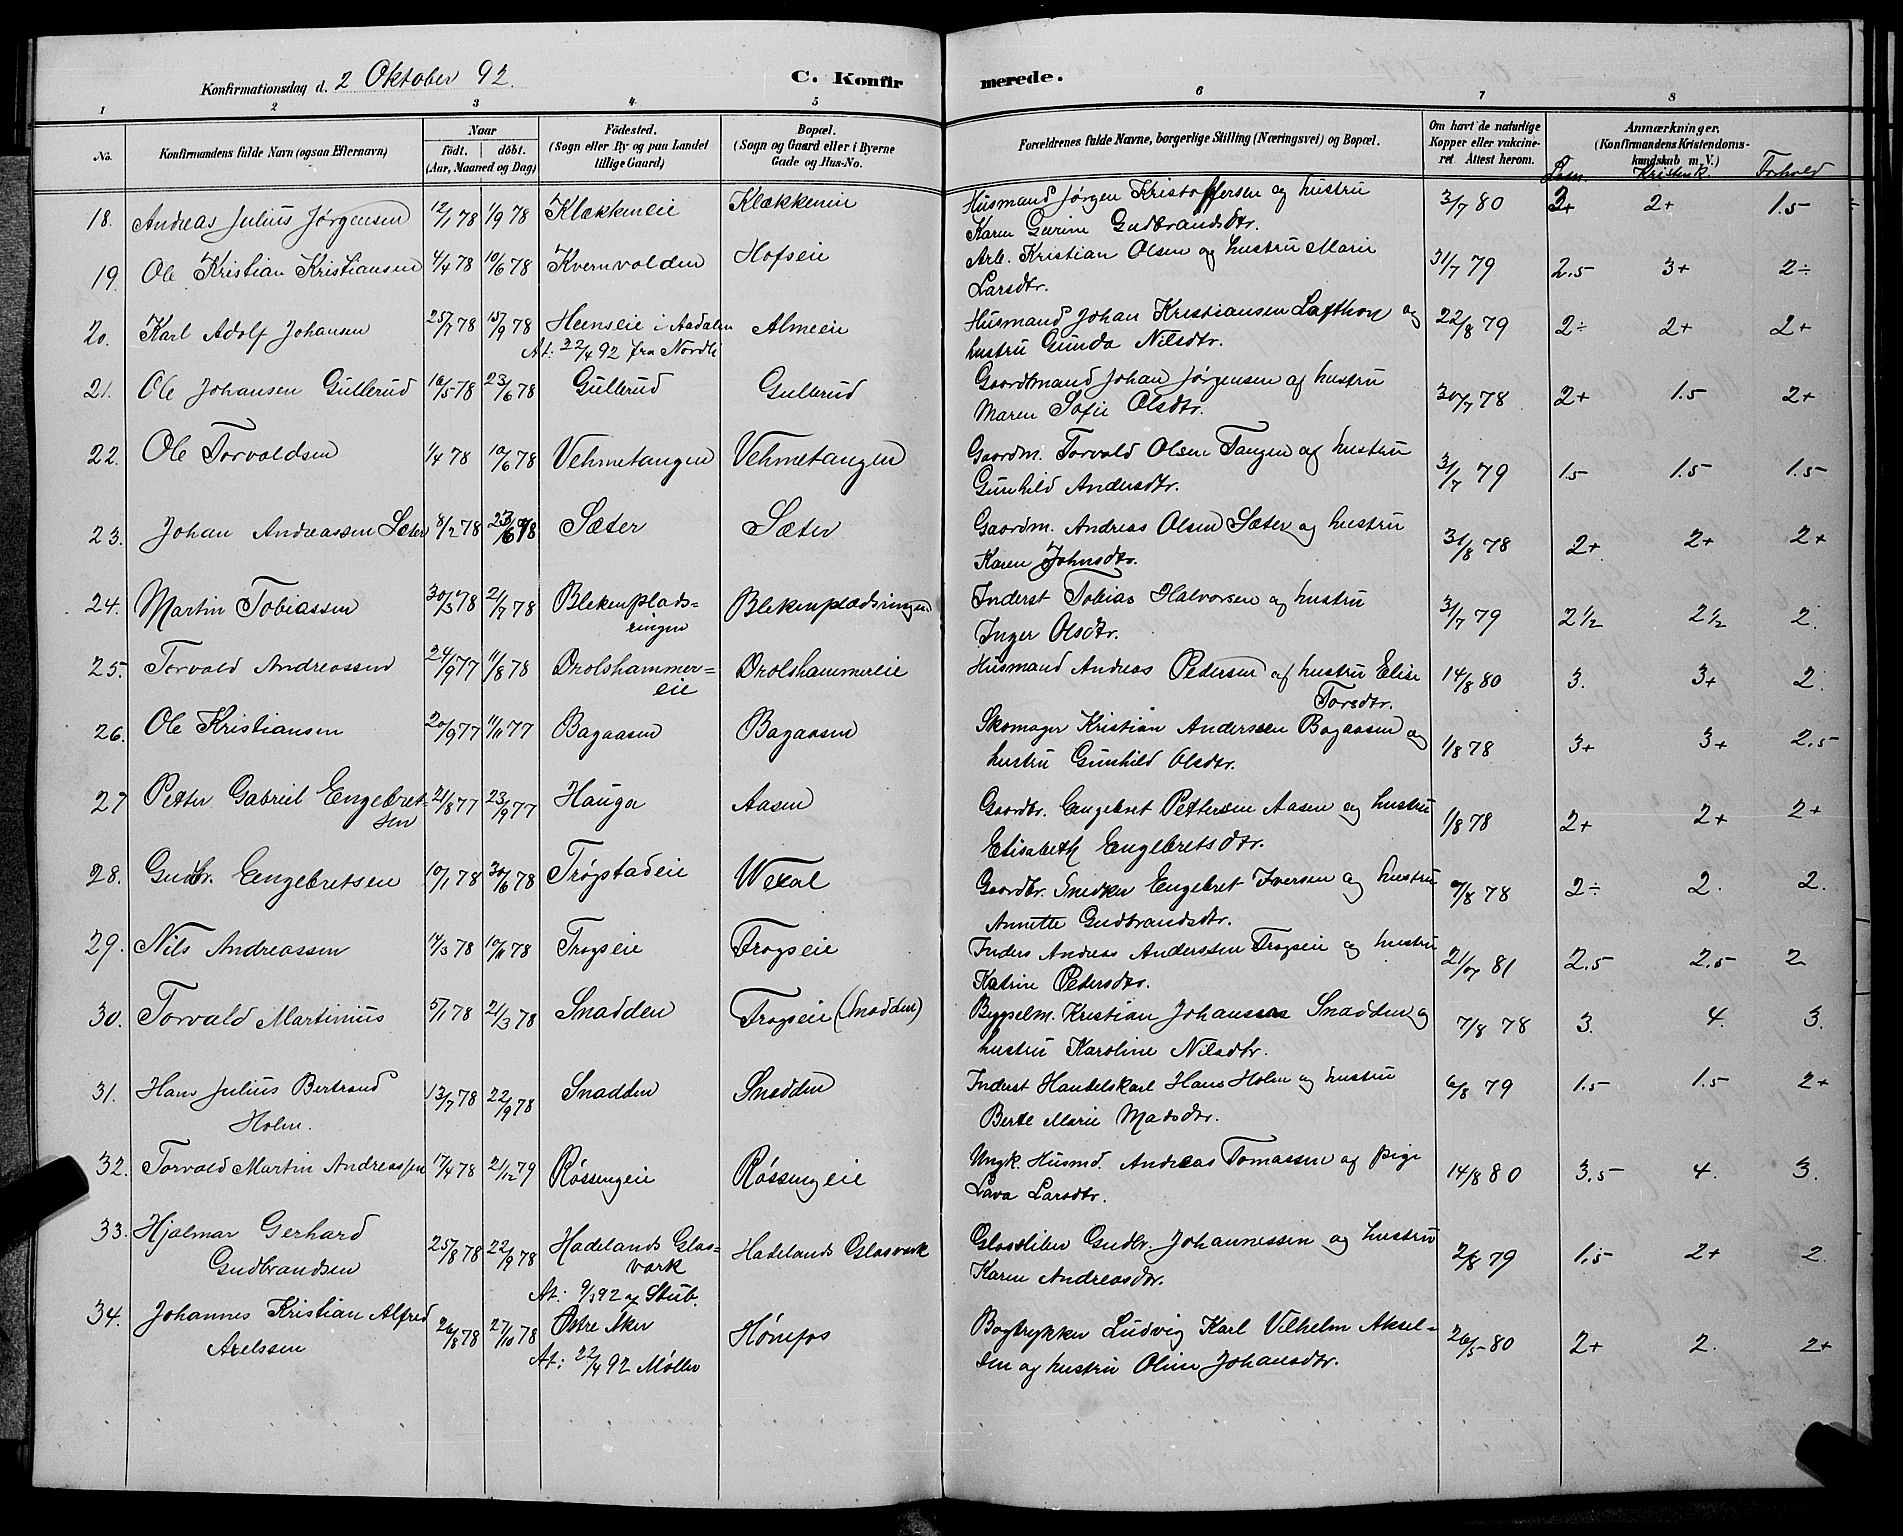 Konfirmationsdag d. 2 Oktober 92. C. Konfir merede.
1 2 3 4 5 6 7 8
No. Konfirmandens fulde Navn (ogsaa Efternavn) Naar født. døbt. (Aar, Maaned og Dag) Fødested. (Sogn eller By og paa Landet tillige Gaard) Bopæl. (Sogn og Gaard eller i Byerne Gade og Hus-No. Forældrenes fulde Navne, borgerlige Stilling (Næringsvei) og Bopæl. Om havt de naturlige Kopper eller vakcineret. Attest herom. Anmærkninger. (Konfirmandens Kristendomskundskab m. V.)
Kristusk. Forhold
18. Andreas Julius Jørgensen 12/1 78 1/9 78 Klækkeneie Klækkeneie Husmand Jørgen Kristoffersen og hustru 3/7 80 2+ 2+ 1.5
Karen Gurine Gudbrandsdtr.
19. Ole Kristian Kristiansen 4/4 78 10/6 78 Kvernvolden Hofseie Arb. Kristian Olsen og hustru Marie 31/7 79 2.5 3+ 2÷
Larsdtr.
20. Karl Adolf Johansen 25/7 78 15/9 78 Heenseie i Aadalen Almeie Husmand Johan Kristiansen Lafthon og 22/8 79 2÷ 2+ 2+
At: 22/4 92 fra Nordli hustru Gunda Nilsdtr.
21. Ole Johansen Gullerud 16/5 78 23/6 78 Gullerud Gullerud Gaardmand Johan Jørgensen af hustru 30/7 78 2+ 1.5 2+
Maren Sofie Olsdtr.
22. Ole Torvaldsen 1/4 78 10/6 78 Vehmetangen Vehmetangen Gaardm. Torvald Olsen Tangen af hustru 3/7 79 1.5 1.5 1.5
Gunhild Andersdtr.
23. Johan Andreassen Sæter 8/2 78 23/6 78 Sæter Sæter Gaardm. Andreas Olsen Sæter og hustru 31/8 78 2+ 2+ 2+
Karen Johnsdtr.
24. Martin Tobiassen 30/3 78 2/7 78 Blekenplads- Blekenpladsringen Inderst Tobias Halvorsen og hustru 3/7 79 2½ 2½ 2.
ringen Inger Olsdtr.
25. Torvald Andreassen 24/9 77 11/8 78 Drolshammer- Drolshammereie Husmand Andreas Pedersen af hustru Elise 14/8 80 3. 3+ 2.
eie Toresdtr.
26. Ole Kristiansen 20/9 77 11/11 77 Bagaasen Bagaasen Skomager Kristian Anderssen Bagaasen og 1/8 78 3+ 3+ 2.5
hustru Gunhild Olsdtr.
27 Petter Gabriel Engebret- 21/8 77 23/9 77 Hauger Aasen Gaardbr. Engebret Pettersen Aasen og hustru 1/8 78 2+ 2+ 2+
sen Elisabeth Engebretsdtr.
28. Gudbr. Engebretsen 10/1 78 30/6 78 Trøgstadeie Wexal Gaardbr. Snedker Engebret Iversen og hustru 9/8 78 2÷ 2. 2.
Annette Gudbrandsdtr.
29. Nils Andreassen 14/3 78 10/11 78 Trogseie Frogseie Inders Andreas Anderssen Frogseie og hustru 21/7 81 2.5 2.5 2
Katrine Petersdtr.
30. Torvald Martinius 5/1 78 21/3 78 Snadden Frogseie (Snadden) Bygselm. Kristian Johanssen Snadden og 7/8 78 3. 4. 3.
hustru Karoline Nilsdtr.
31. Hans Julius Bertrand 13/7 78 22/9 78 Snadden Snadden Inderst Handelskarl Hans Holm og hustru 6/8 79 1.5 1.5 2+
Holm. Berte Marie Madsdtr.
32. Torvald Martin Andreassen 17/4 78 21/12 79 Røssengeie Røssengeie Ungk. Husmd. Andreas Tomassen og pige 14/8 80 3.5 4. 3.
Lava Larsdtr.
33. Hjalmar Gerhard 25/8 78 22/9 78 Hadelands Glas- Hadelands Glasværk Glassliber Gudbr. Johannessen og hustru 2/8 79 1.5 2+ 2.
Gudbrandsen værk Karen Andreasdtr.
At: 9/3 92 af Stub.
34. Johannes Kristian Alfred 26/8 78 27/10 78 Østre Aker Hønefos Bogtrykker Ludvig Karl Vilhelm Aksel- 26/5 80 2+ 2. 2+
Axelssen At: 22/4 92 Møller sen og hustru Oline Johansdtr.